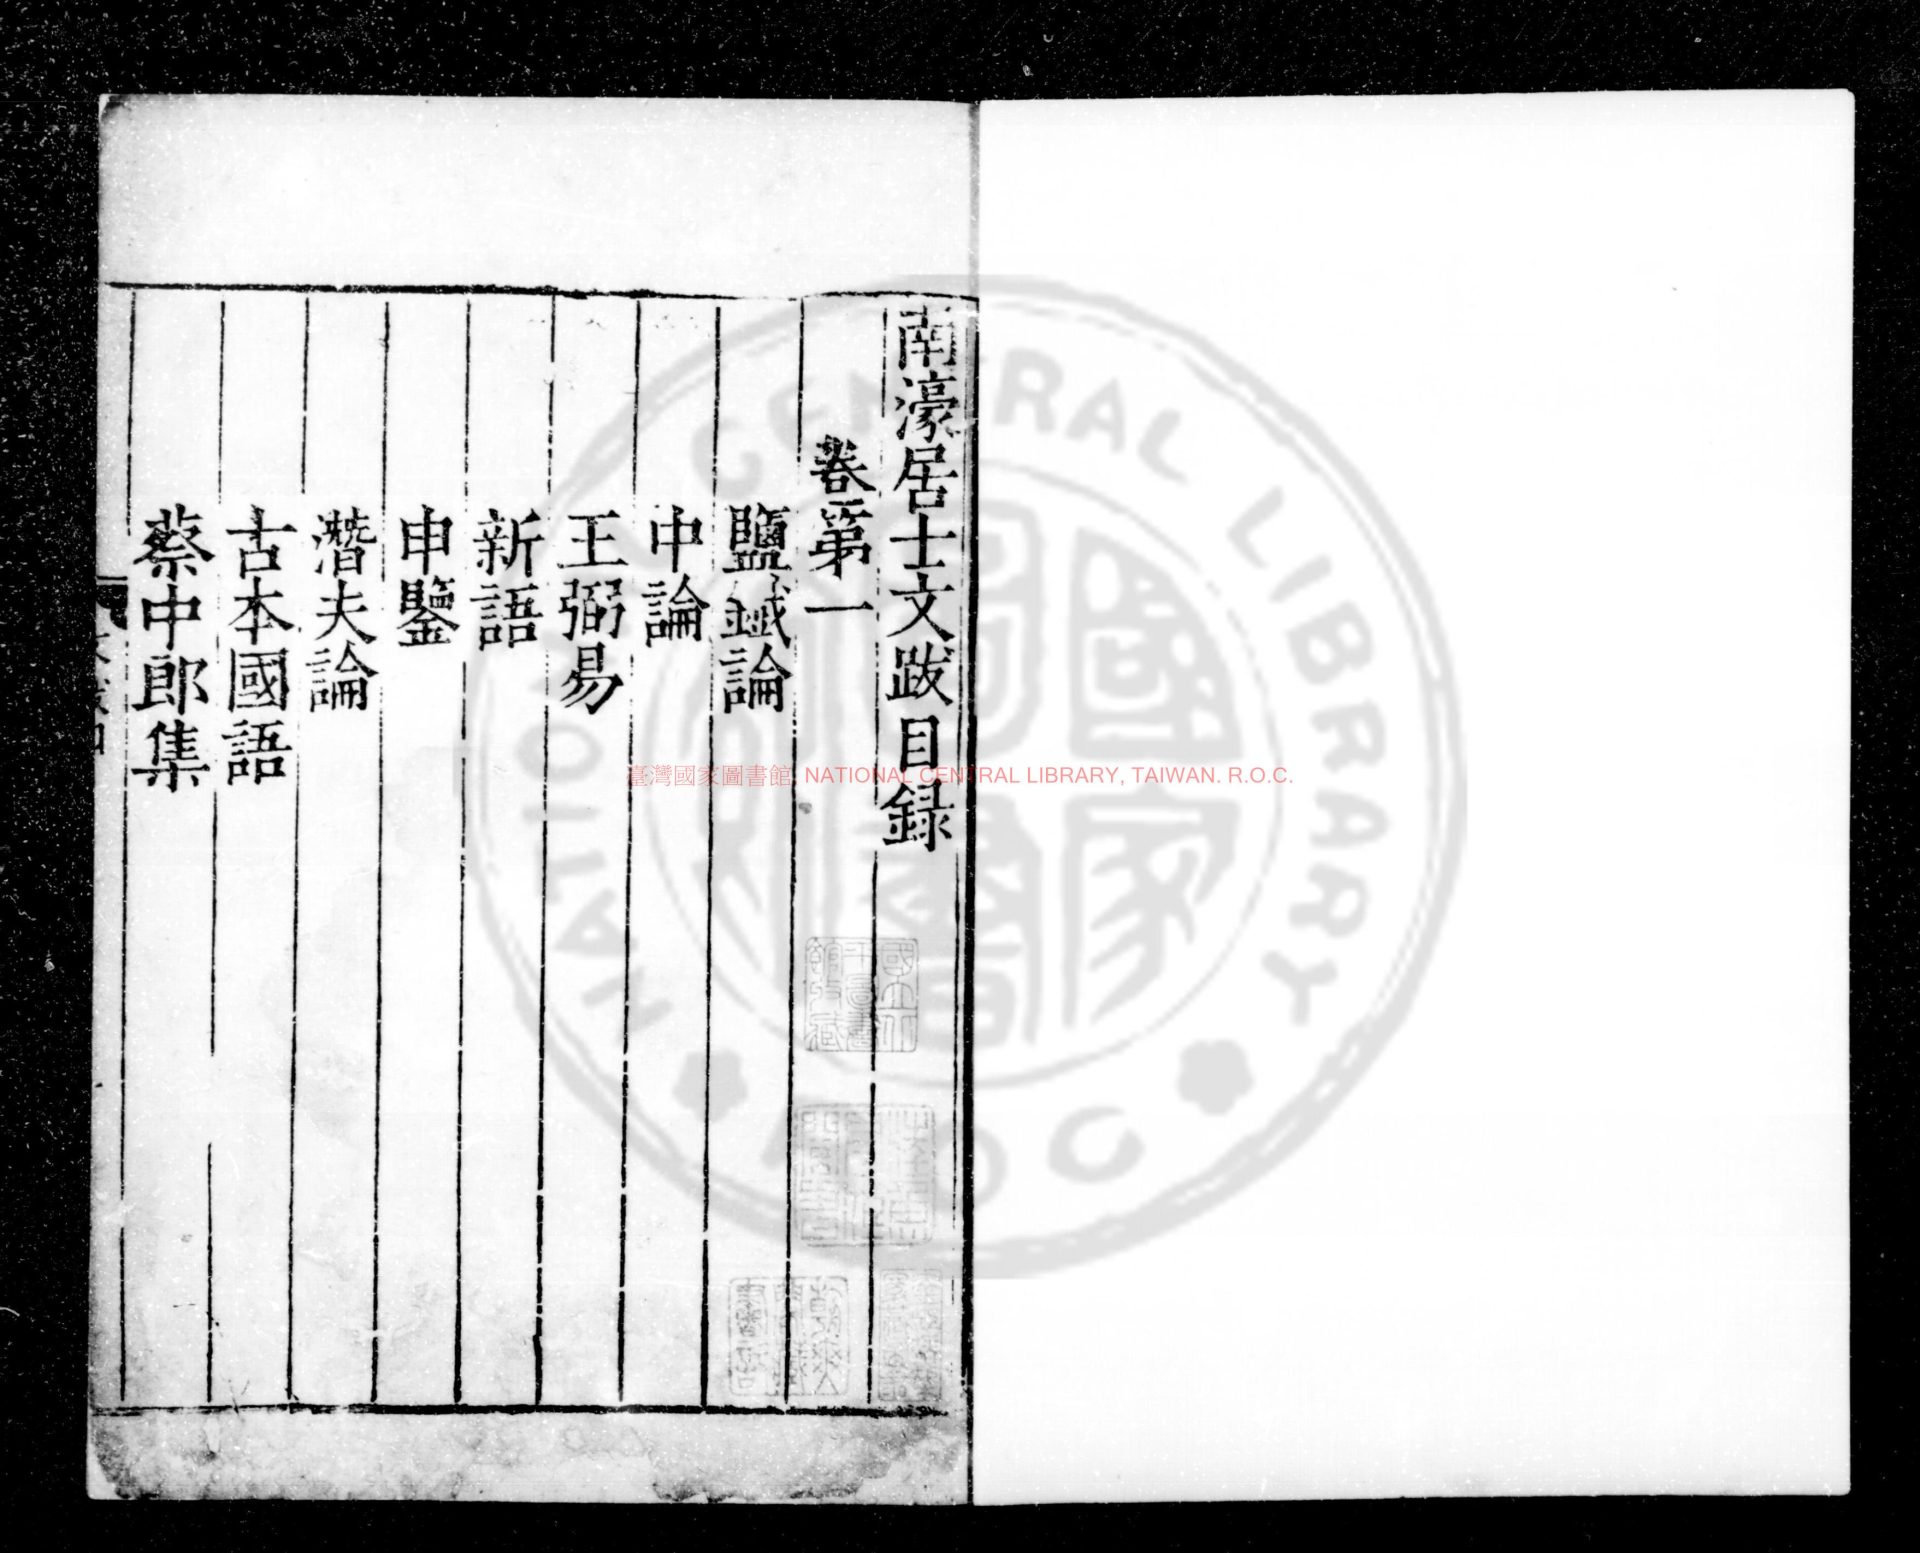 南濠居士文跋目録
卷第一
鹽鐵論
中論
王弼易
新語
申鑒
潛夫論
古本國語
蔡中郎集
國立中
央圖書
館收藏
臺灣國家圖書館, NATIONAL CENTRAL LIBRARY, TAIWAN. R.O.C.
NATIONAL CENTRAL LIBRARY
R.O.C.
國家
圖書